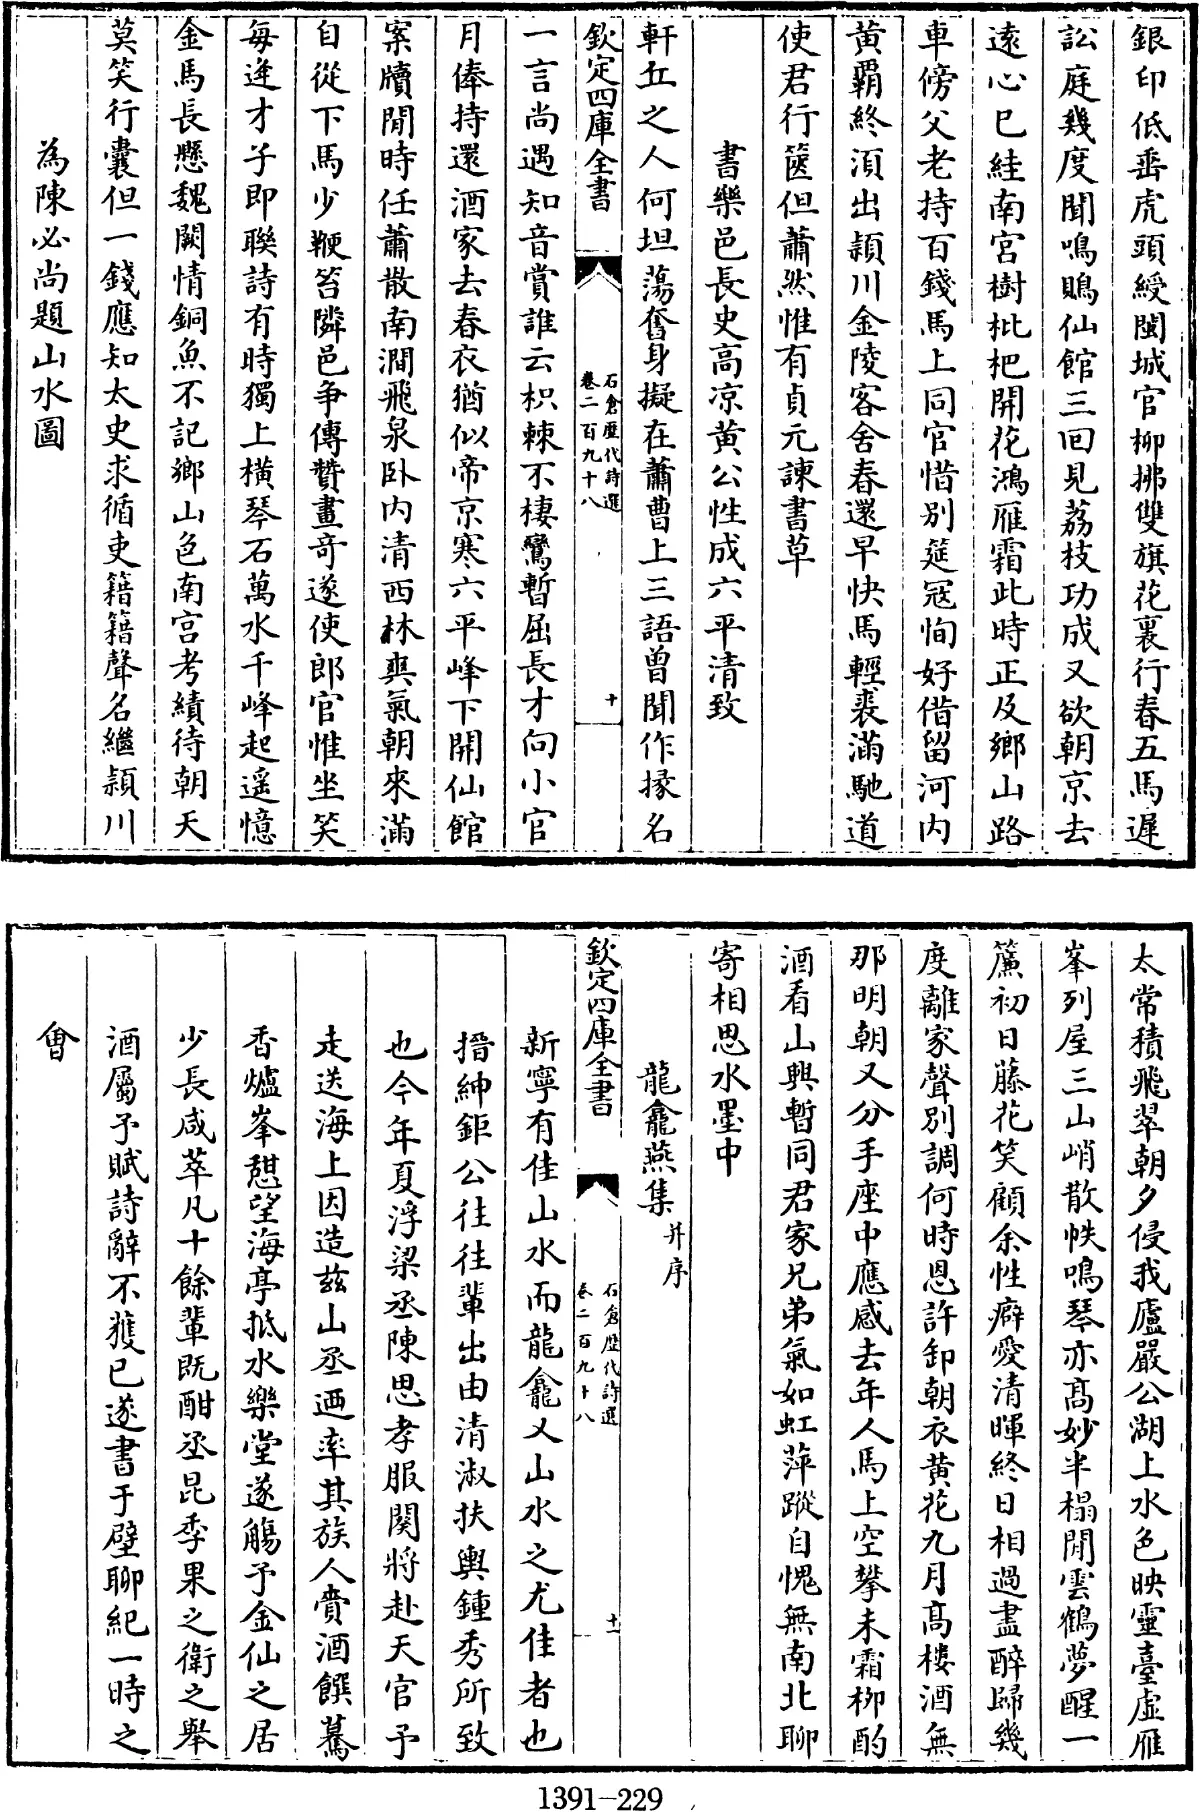 銀印低垂虎頭綬閩城官柳拂雙旗花裏行春五馬遲
訟庭幾度聞鳴鵙仙館三回見荔枝功成又欲朝京去
遠心已絓南宮樹枇杷開花鴻雁霜此時正及鄉山路
車傍父老持百錢馬上同官惜別筵寇恂好借留河内
黄覇終湏出潁川金陵客舍春還早快馬輕裘滿馳道
使君行篋但蕭然惟有貞元諫書草
書樂邑長史高凉黄公性成六平清致
軒丘之人何坦蕩奮身擬在蕭曹上三語曾聞作掾名
欽定四庫全書
石倉歷代詩選
卷二百九十八
十
一言尚遇知音賞誰云枳棘不棲鸞暫屈長才向小官
月俸持還酒家去春衣猶似帝京寒六平峰下開仙館
案牘閒時任蕭散南澗飛泉卧内清西林爽氣朝來滿
自從下馬少鞭笞隣邑争傳贊畫奇遂使郎官惟坐笑
每逢才子即聯詩有時獨上横琴石萬水千峰起遥憶
金馬長懸魏闕情銅魚不記鄉山色南宫考績待朝天
莫笑行囊但一錢應知太史求循吏籍籍聲名繼潁川
為陳必尚題山水圖
太常積飛翠朝夕侵我廬嚴公湖上水色映靈臺虚雁
峯列屋三山峭散帙鳴琴亦髙妙半榻閒雲鶴夢醒一
簾初日藤花笑顧余性癖愛清暉終日相過盡醉歸幾
度離家聲别調何時恩許卸朝衣黄花九月髙樓酒無
那明朝又分手座中應感去年人馬上空攀未霜柳酌
酒看山興暫同君家兄弟氣如虹萍蹤自愧無南北聊
寄相思水墨中
龍龕燕集并序
欽定四庫全書
石倉歷代詩選
卷二百九十八
十一
新寧有佳山水而龍龕又山水之尤佳者也
搢紳鉅公往往輩出由清淑扶輿鍾秀所致
也今年夏浮梁丞陳思孝服闋將赴天官予
走送海上因造兹山丞迺率其族人賫酒饌驀
香爐峯憇望海亭抵水樂堂遂觴予金仙之居
少長咸萃凡十餘輩既酣丞昆季果之衛之舉
酒屬予賦詩辭不獲已遂書于壁聊紀一時之
會
1391-229